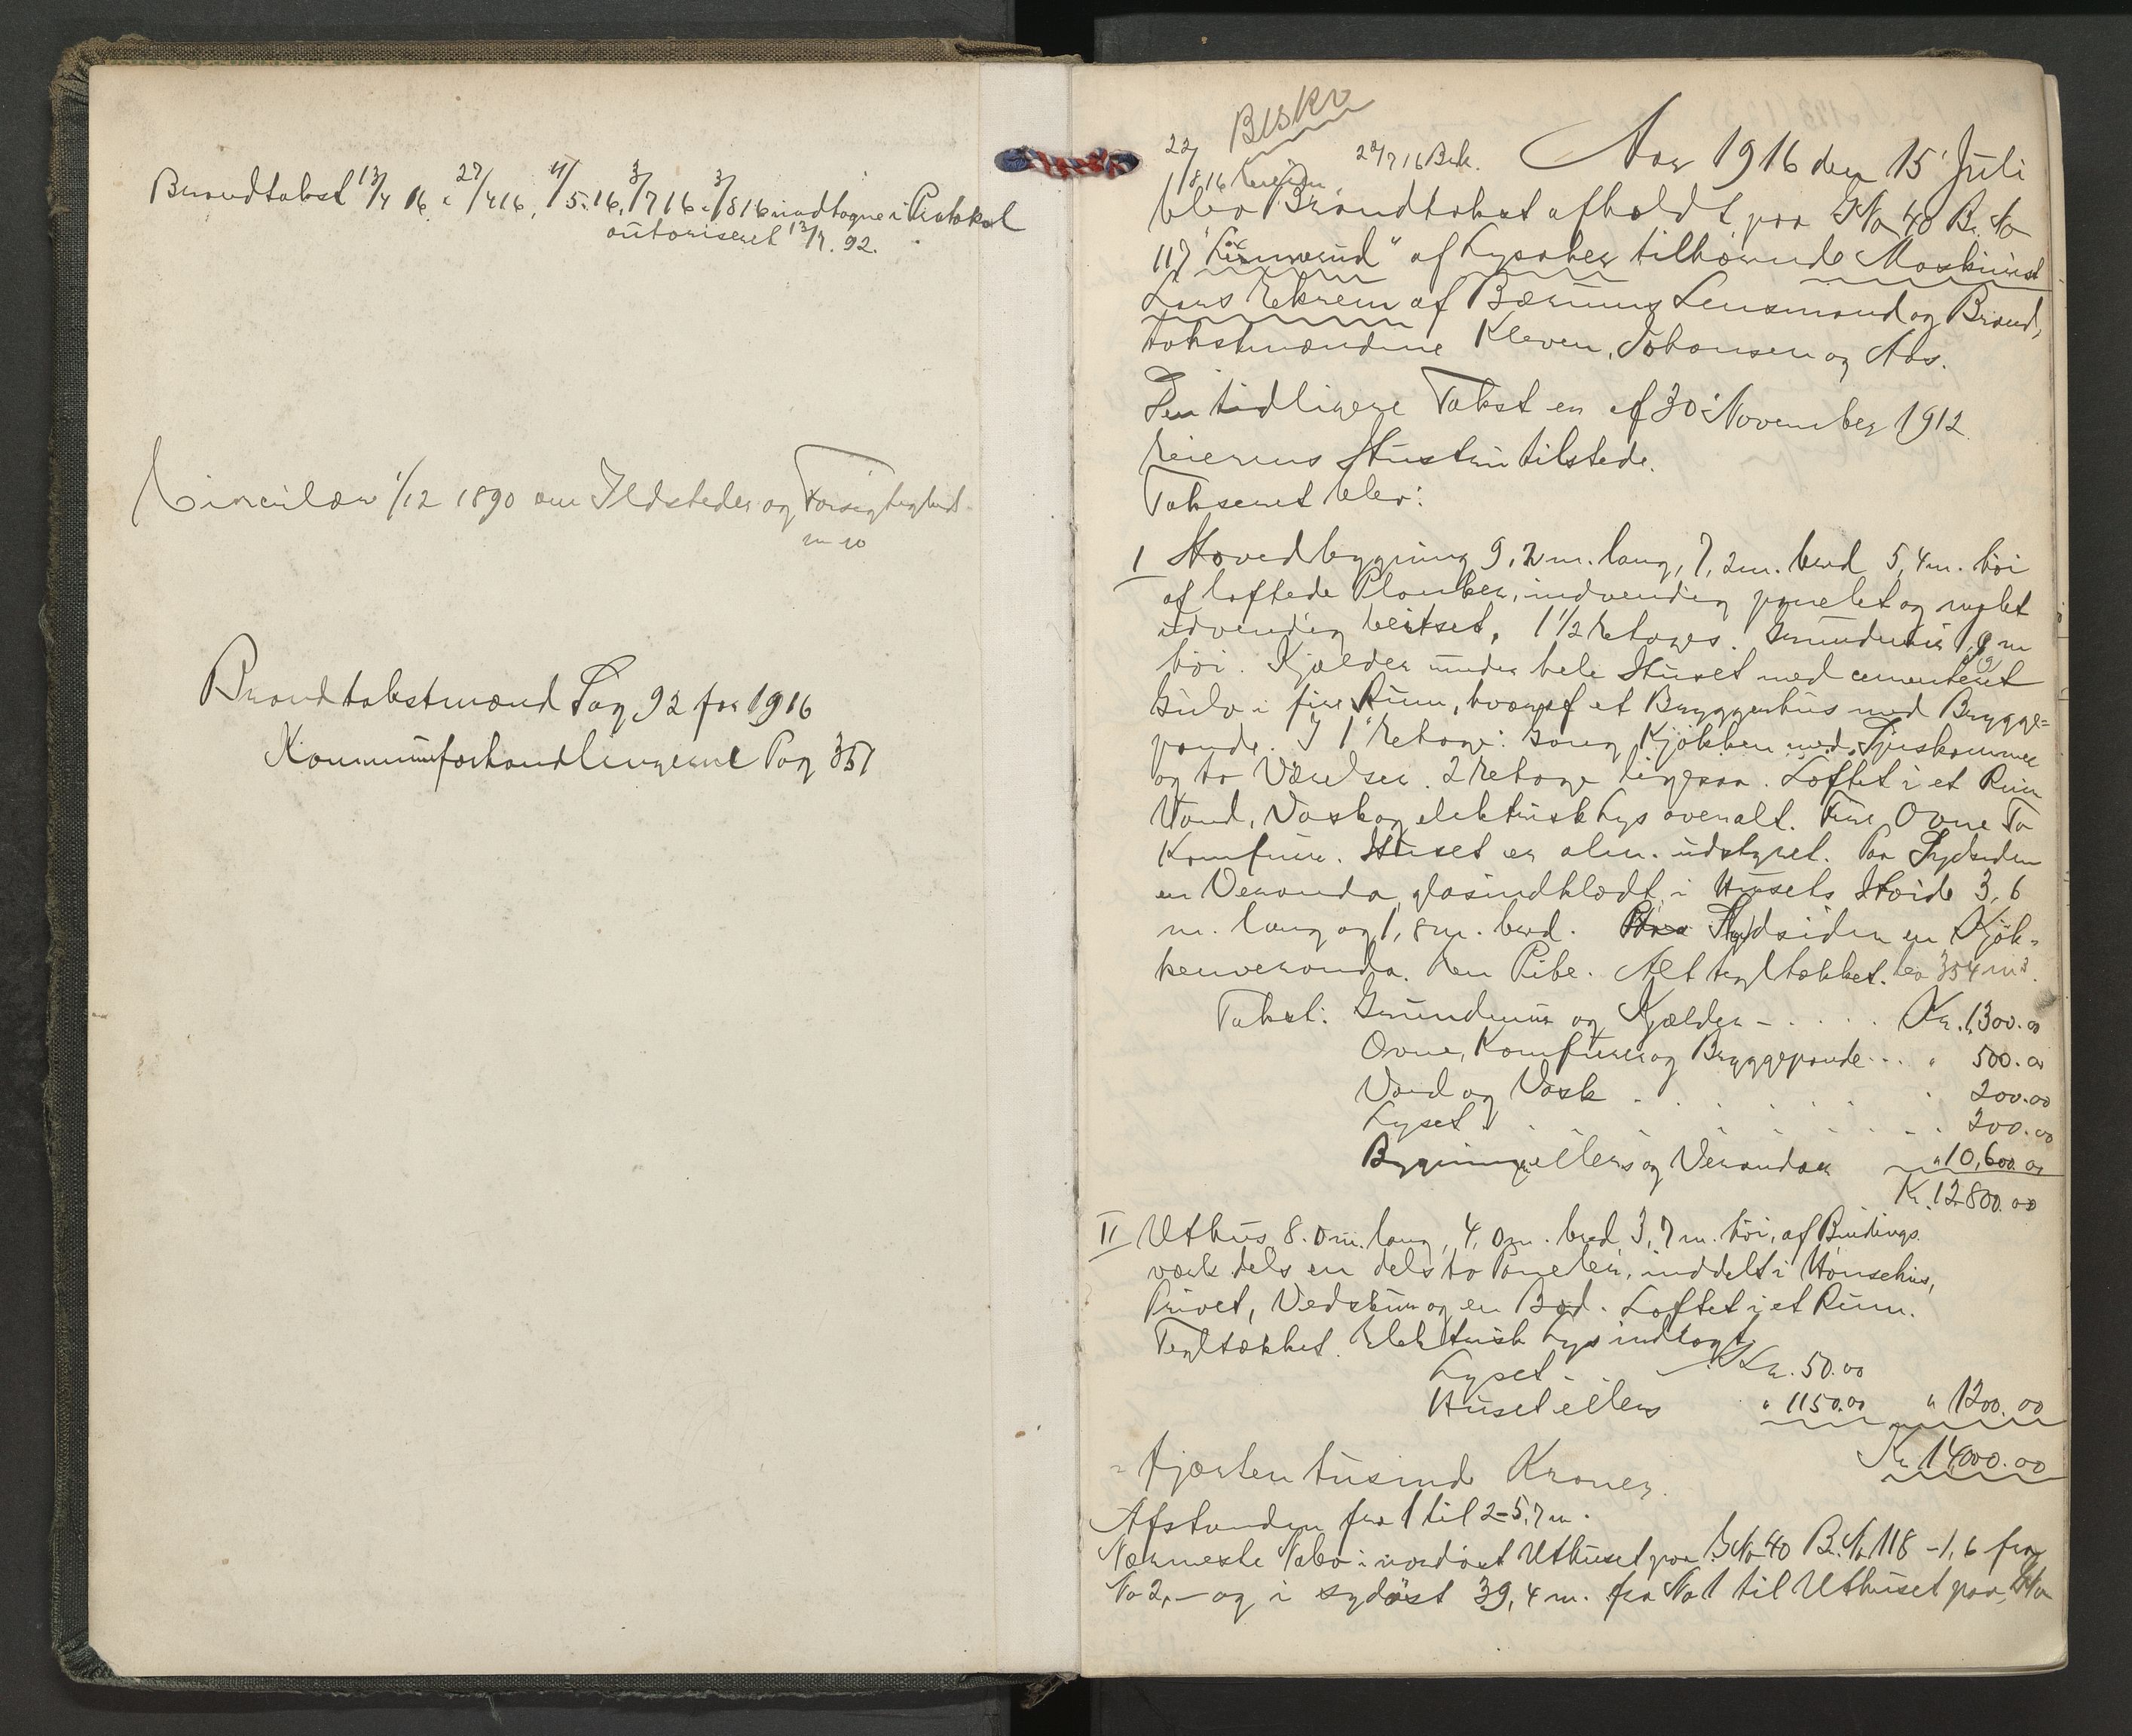 Brandtakst 13/4 16. 27/4 16, 4/5. 16, 3/7 16. 3/8 16 indtagne i Protokol
autoriseret 13/7. 92.
Circulær 1/12 1890 om Ildsteder og Forsigtighed
m. v.
Brandtakstmænd Pag 92 for 1916
Kommuneforhandlingerne Pag 357
22/8 16
22/7 16 Besk.
Aar 1916 den 15' Juli
blev Brandtakst afholdt paa G No 40 B. No
117 af Lysaker tilhørende Maskinist
Lars Rekrem af Bærums Lensmand og Brand,
takstmændene Kleven, Johansen og Aas.
Den tidligere Takst er af 30' November 1912.
Eierens Hustru tilstede.
Takseret blev:
I Hovedbygning 9,2 m. lang, 7,2 m. bred 5,4 m. høi
af laftede Planker, indvendig panelet og malet
udvendig beitset, 1 1/2 Etages. Grundmur 1,9 m
høi. Kjælder under hele Huset med cementeret
Gulv i fire Rum, hvoraf et Bryggerhus med Brygge=
pande. I 1' Etage: Gang Kjøkken med Spiskammer
og to Værelser. 2 Etage ligesaa. Loftet i et Rum
Vand, Vask og elektrisk Lys overalt. Fire Ovne To
Komfure. Huset er alm. udstyret. Paa Sydsiden
en Veranda, glasindklædt, i Husets Høide 3,6
m. lang og 1,8 m. bred. Paa Sydsiden en Kjøk-
kenveranda. En Pibe. Alt tegltækket. Ca 354 m3.
Takst: Grundmur og Kjælder - . . . . Kr. 1300.00
Ovne, Komfurer og Bryggepande . . . " 500.00
Vand og Vask . . . . . . 200.00
Lyset . . . . . . . . 200.00
Bygningen ellers og Verandaer " 10,600.00
Kr. 12800.00
II Uthus 8.0 m. lang, 4,0 m. bred 3,7 m. høi, af Bindings
værk dels en dels to Paneler, inddelt i Hønsehus,
Privet, Vedskur og en Bod. Loftet i et Rum.
Tegltækket. Elektrisk Lys indlagt.
Lyset - Kr. 50.00
Huset ellers " 1150.00 " 1200.00
Kr. 14000.00
= fjorten tusind Kroner.
Afstanden fra 1 til 2 - 5,7 m.
Nærmeste Nabo i nordøst Uthuset paa G No 40 B. No 118 - 1,6 fra
No 2, - og i sydøst 39,4 m. fra No 1 til Uthuset paa G No